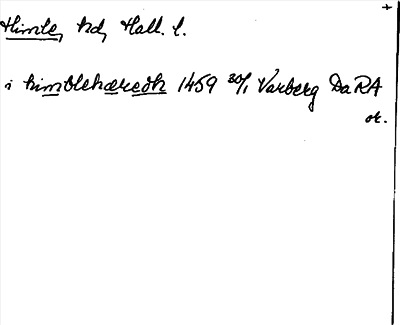 +
Himle, hd, Hall. l.
i himblehæredh 1459 30/1 Varberg DaRA
or.